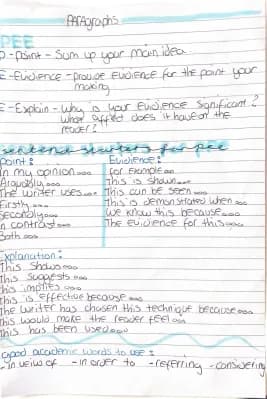 PARAgraphs
PEE
P - Point - Sum up your main idea
E - Evidence - provide Evidence for the point your
making
E - Explain - Why is your Evidence significant?
what affect does it have on the
reader?
sentence starters for pee
point:
In my opinion...
Arguably...
The writer uses...
Firstly...
Secondly...
In contrast...
Both...
Evidence:
for example...
This is shown...
This can be seen...
This is demonstrated when...
We know this because...
The evidence for this...
Explanation:
This shows...
This suggests...
This implies...
this is effective because...
The writer has chosen this technique because...
This would make the reader feel...
This has been used...
good academic words to use:
- In veiw of - in order to - referring - considering